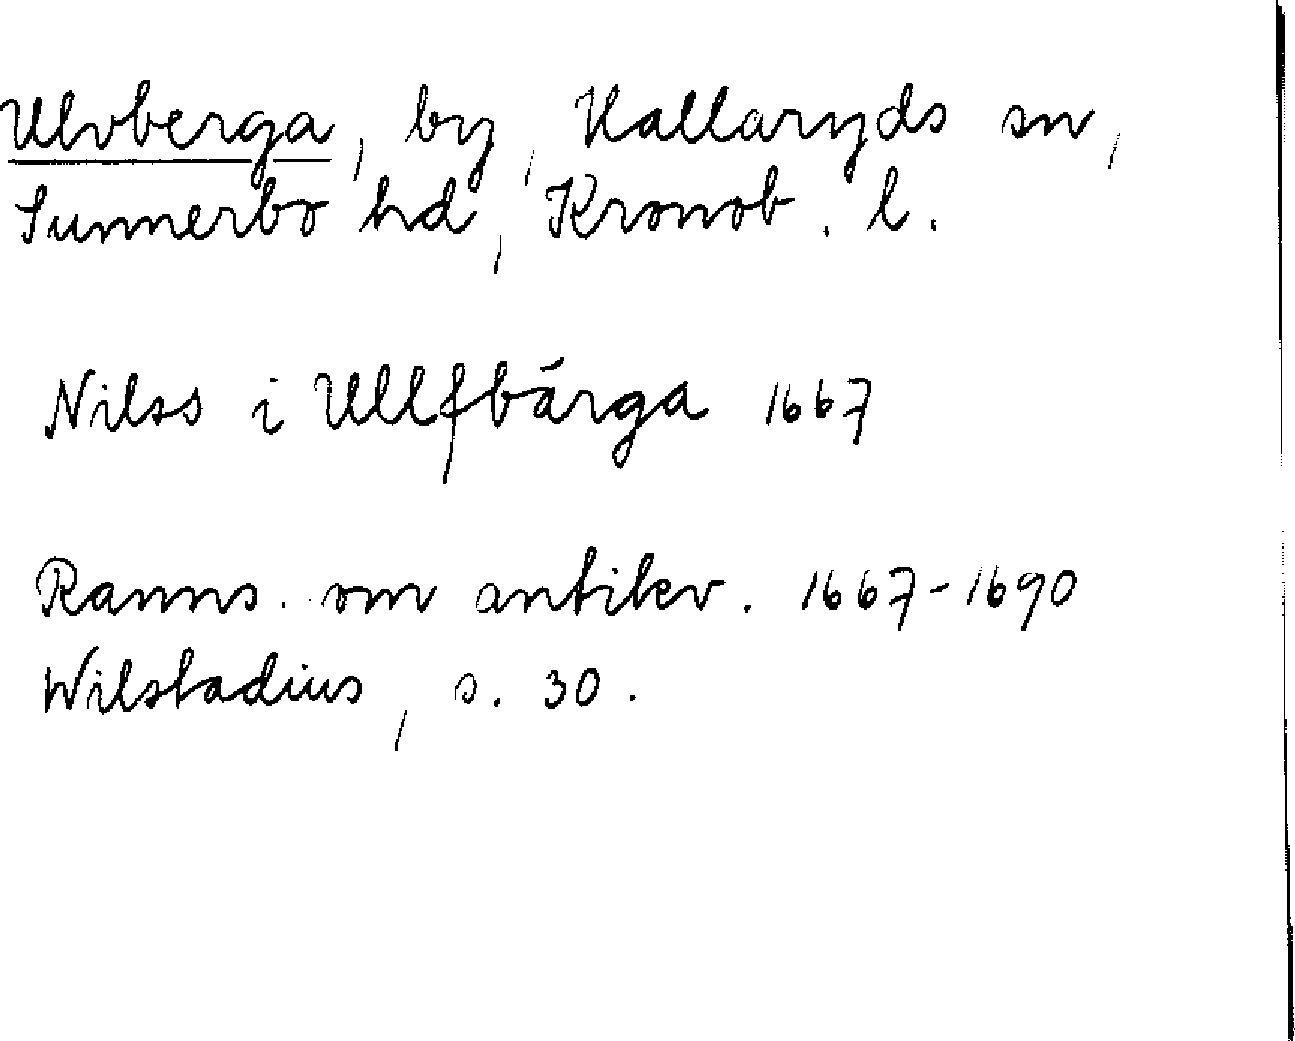 Ulvberga, by, Hallaryds sn,
Sunnerbo hd, Kronob. l.
Nilss i Ullfbärga 1667
Ranns. om antikv. 1667-1690
Wilstadius, s. 30.